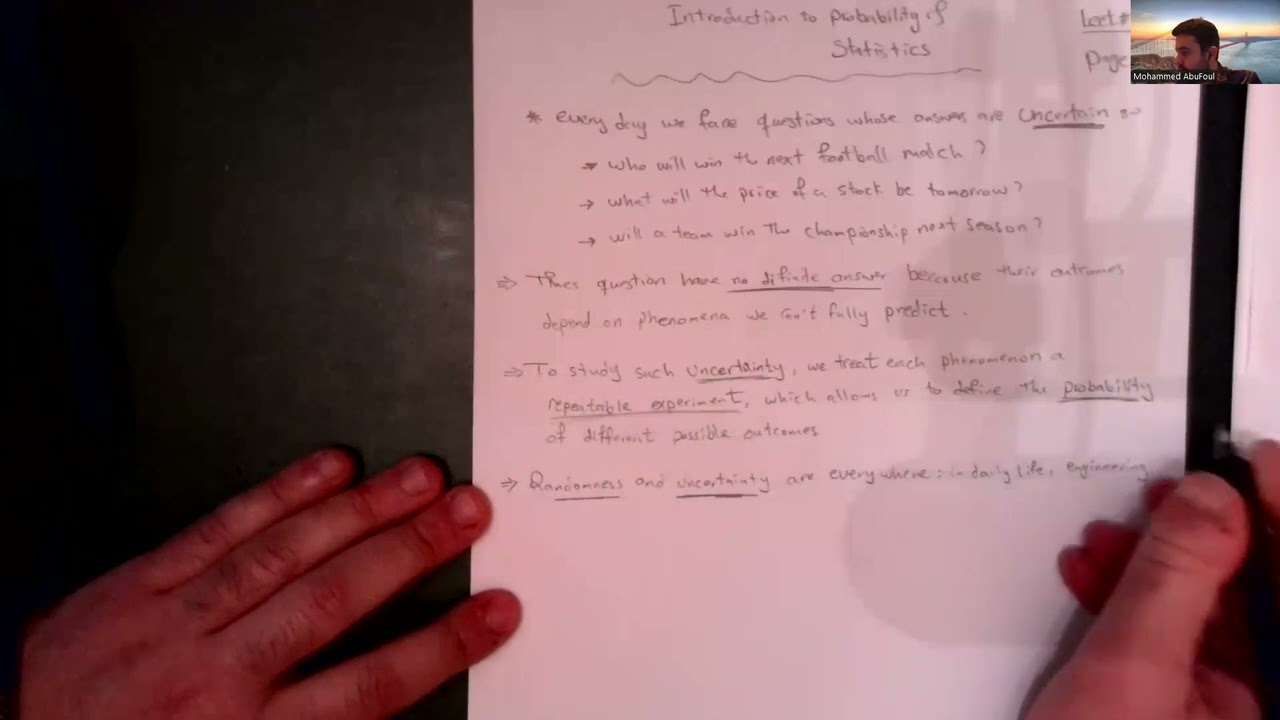 Introduction to probability &
Statistics
Lect #
page
Mohammed AbuFoul
* every day we face questions whose answers are Uncertain :-
→ who will win the next football match ?
→ what will the price of a stock be tomorrow ?
→ will a team win the championship next season ?
⇒ Thes question have no difinite answer because their outcomes
depend on phenomena we can't fully predict .
⇒ To study such Uncertainty, we treat each phenomenon a
repeatable experiment, which allows us to define the probability
of different possible outcomes
⇒ Randomness and uncertainty are everywhere : in daily life, engineering